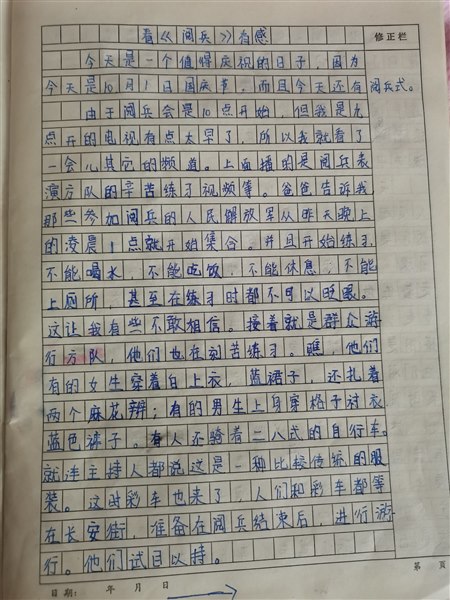 看《阅兵》有感
修正栏
今天是一个值得庆祝的日子，因为
今天是10月1日国庆节，而且今天还有阅兵式。
由于阅兵会是10点开始，但我是九
点开的电视有点太早了，所以我就看了
一会儿其它的频道。上面播的是阅兵表
演方队的辛苦练习视频等。爸爸告诉我
那些参加阅兵的人民解放军从昨天晚上
的凌晨1点就开始集合。并且开始练习，
不能喝水，不能吃饭，不能休息，不能
上厕所，甚至在练习时都不可以眨眼。
这让我有些不敢相信。接着就是群众游
行方队，他们也在刻苦练习。瞧，他们
有的女生穿着白上衣，蓝裙子，还扎着
两个麻花辫；有的男生上身穿格子衬衣
蓝色裤子。有人还骑着二八式的自行车。
就连主持人都说这是一种比较传统的服
装。这时彩车也来了，人们和彩车都等
在长安街，准备在阅兵结束后，进行游
行。他们试目以持。
第 页
日期： 年 月 日